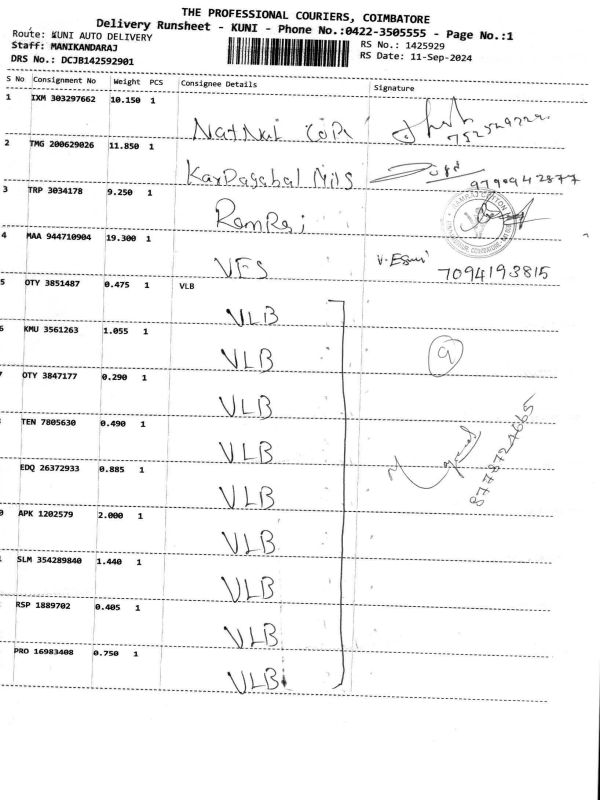 THE PROFESSIONAL COURIERS, COIMBATORE
Delivery Runsheet - KUNI - Phone No.:0422-3505555 - Page No.:1
Route: KUNI AUTO DELIVERY
RS No.: 1425929
Staff: MANIKANDARAJ
RS Date: 11-Sep-2024
DRS No.: DCJB142592901
S No Consignment No Weight PCS Consignee Details Signature
1 IXM 303297662 10.150 1
2 TMG 200629026 11.850 1
9790942877
3 TRP 3034178 9.250 1
4 MAA 944710904 19.300 1 VES
7094193815
5 OTY 3851487 0.475 1 VLB
VLB
6 KMU 3561263 1.055 1 VLB 9
OTY 3847177 0.290 1 VLB
TEN 7805630 0.490 1 VLB
EDQ 26372933 0.885 1 VLB
APK 1202579 2.000 1 VLB
SLM 354289840 1.440 1 VLB
RSP 1889702 0.405 1 VLB
PRO 16983408 0.750 1 VLB